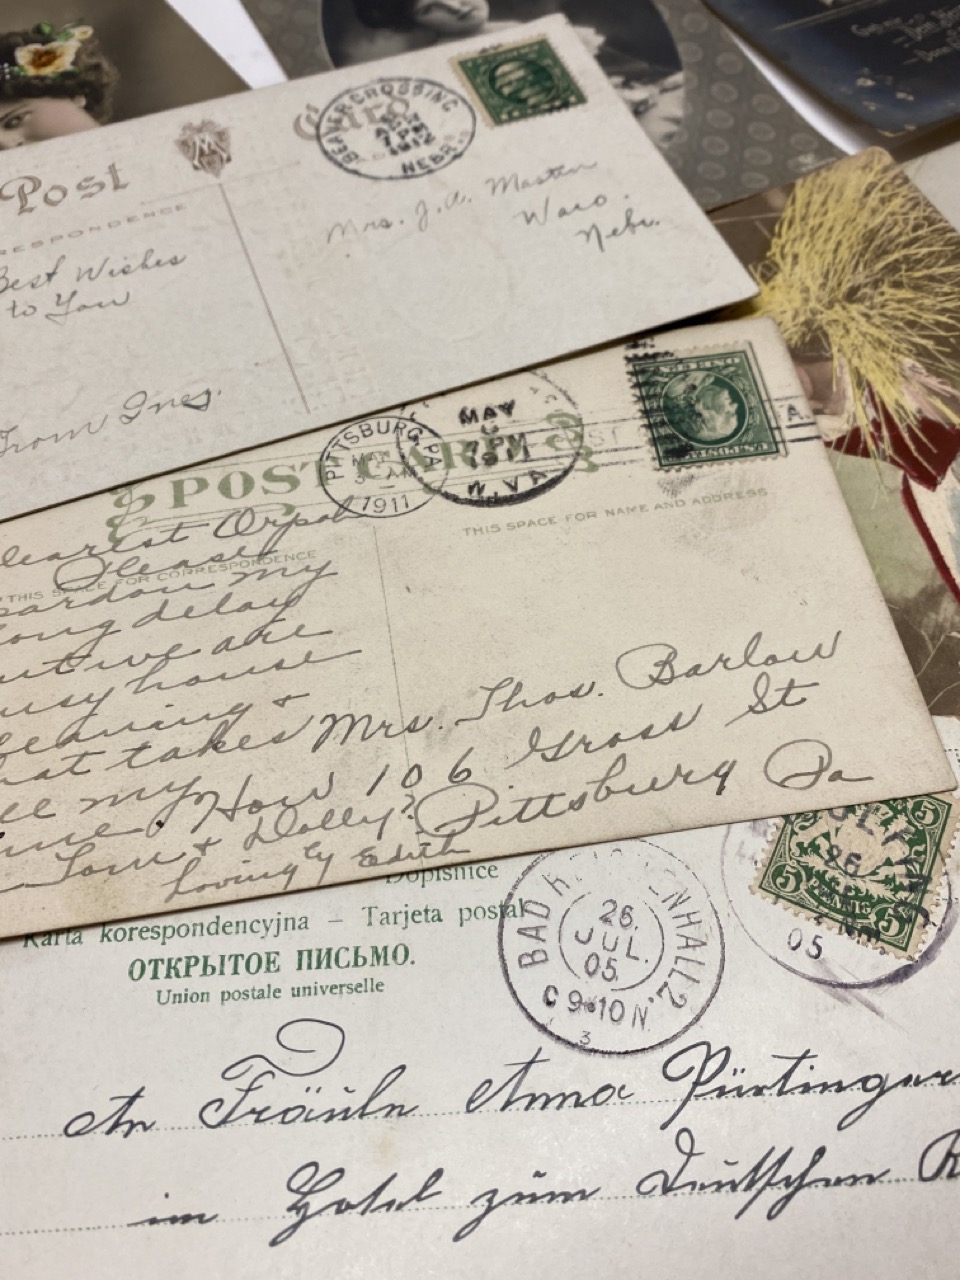 Post Card
BEAVER CROSSING
APR
7 PM
1912
NEBR.
RESPONDENCE
Best Wishes
to You
From Ines.
Mrs. J. A. Masten
Waco.
Nebr.
POST CARD
PITTSBURG, PA
MAY
AM
1911
MAY
7 PM
1911
W. VA.
THIS SPACE FOR CORRESPONDENCE
THIS SPACE FOR NAME AND ADDRESS
Dearest Orpa
Please
pardon my
long delay
but we are
busy house
cleaning +
that takes
all my
time. How
Tom + Dolly?
Lovingly Edith
Mrs. Thos. Barlow
106 Gross St
Pittsburg Pa
Dopisnice
Karta korespondencyjna – Tarjeta postal
ОТКРЫТОЕ ПИСЬМО.
Union postale universelle
BAD REICHENHALL 2.
26.
JUL.
05.
9-10 N
3
26
05
5
5
5
PFENNIG
An Fräuln Anna Pürtinger
im Hotel zum Deutschen